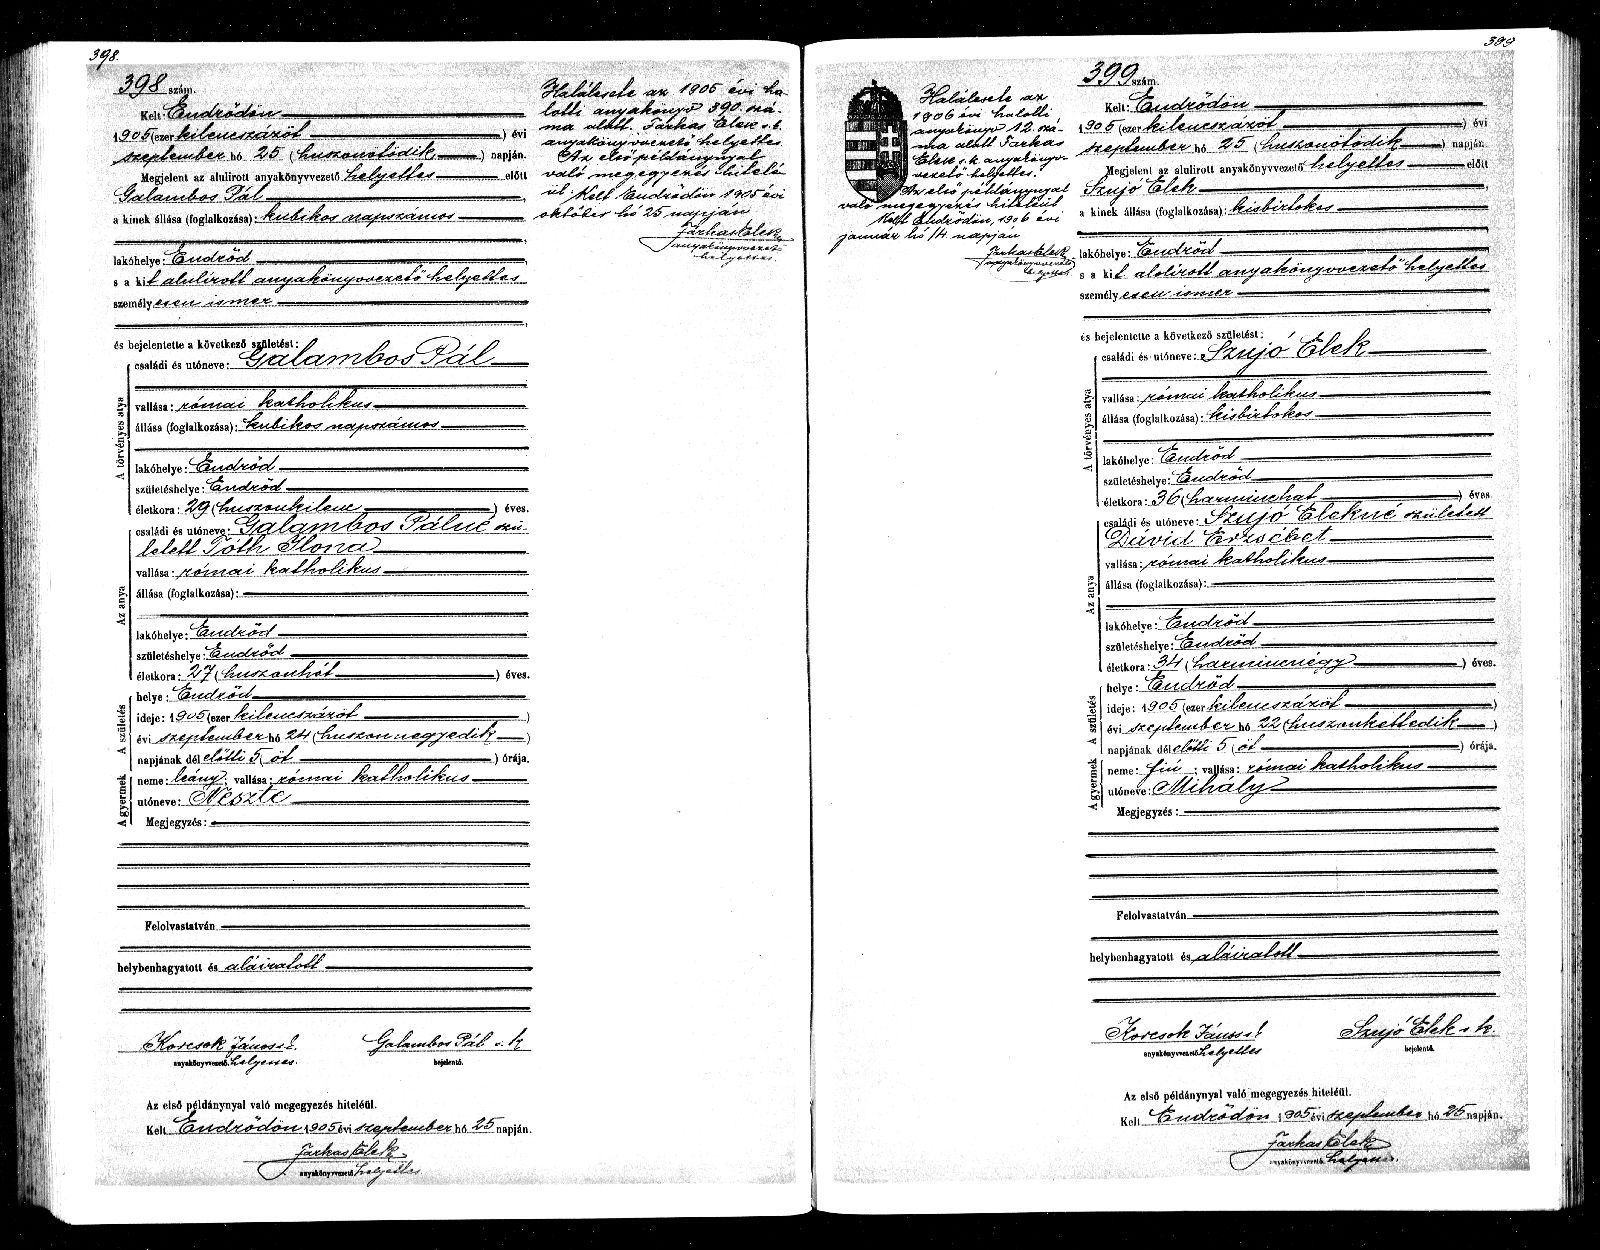 398.
398 szám.
Kelt: Endrődön
1905 (ezer kilencszázöt) évi
szeptember hó 25 (huszonötödik) napján.
Megjelent az alulirott anyakönyvvezető helyettes előtt
Galambos Pál,
a kinek állása (foglalkozása): kubikos napszámos
lakóhelye: Endrőd
s a kit alulirott anyakönyvvezető helyettes
személyesen ismer
és bejelentette a következő születést:
A törvényes atya
családi és utóneve: Galambos Pál
vallása: római katholikus
állása (foglalkozása): kubikos napszámos
lakóhelye: Endrőd
születéshelye: Endrőd
életkora: 29 (huszonkilenc) éves.
Az anya
családi és utóneve: Galambos Pálné szü-
letett Tóth Ilona
vallása: római katholikus
állása (foglalkozása):
lakóhelye: Endrőd
születéshelye: Endrőd
életkora: 27 (huszonhét) éves.
A születés
helye: Endrőd
ideje: 1905 (ezer kilencszázöt)
évi szeptember hó 24 (huszonnegyedik)
napjának dél előtti 5 (öt) órája.
A gyermek
neme: leány; vallása: római katholikus
utóneve: Nészte
Megjegyzés:
Felolvastatván
helybenhagyatott és aláiratott
Korcsok János s. k. Galambos Pál s. k.
anyakönyvvezető helyettes. bejelentő.
Az első példánynyal való megegyezés hiteléül.
Kelt Endrődön 1905 évi szeptember hó 25 napján.
Farkas Elek
anyakönyvvezető helyettes
Halálesete az 1905 évi ha-
lotti anyakönyv 390. szá-
ma alatt. Farkas Elek s. k.
anyakönyvvezető helyettes.
Az első példánynyal
való megegyezés hitelé-
ül. Kelt Endrődön 1905 évi
október hó 25 napján
Farkas Elek
anyakönyvvezető
helyettes.
399
Halálesete az
1906 évi halotti
anyakönyv 12. szá-
ma alatt Farkas
Elek s. k. anyakönyv-
vezető helyettes.
Az első példánynyal
való megegyezés hiteléül
Kelt Endrődön, 1906 évi
január hó 14 napján
Farkas Elek
anyakönyvvezető
helyettes
399 szám.
Kelt: Endrődön
1905 (ezer kilencszázöt) évi
szeptember hó 25 (huszonötödik) napján.
Megjelent az alulirott anyakönyvvezető helyettes előtt
Szujó Elek,
a kinek állása (foglalkozása): kisbirtokos
lakóhelye: Endrőd
s a kit alulirott anyakönyvvezető helyettes
személyesen ismer
és bejelentette a következő születést:
A törvényes atya
családi és utóneve: Szujó Elek
vallása: római katholikus
állása (foglalkozása): kisbirtokos
lakóhelye: Endrőd
születéshelye: Endrőd
életkora: 36 (harminchat) éves.
Az anya
családi és utóneve: Szujó Elekné született
Dávid Erzsébet
vallása: római katholikus
állása (foglalkozása):
lakóhelye: Endrőd
születéshelye: Endrőd
életkora: 34 (harmincnégy) éves.
A születés
helye: Endrőd
ideje: 1905 (ezer kilencszázöt)
évi szeptember hó 22 (huszonkettedik)
napjának dél előtti 5 (öt) órája.
A gyermek
neme: fiú; vallása: római katholikus
utóneve: Mihály
Megjegyzés:
Felolvastatván
helybenhagyatott és aláiratott
Korcsok János s. k. Szujó Elek s. k.
anyakönyvvezető helyettes bejelentő.
Az első példánynyal való megegyezés hiteléül.
Kelt Endrődön, 1905 évi szeptember hó 25 napján.
Farkas Elek
anyakönyvvezető helyettes